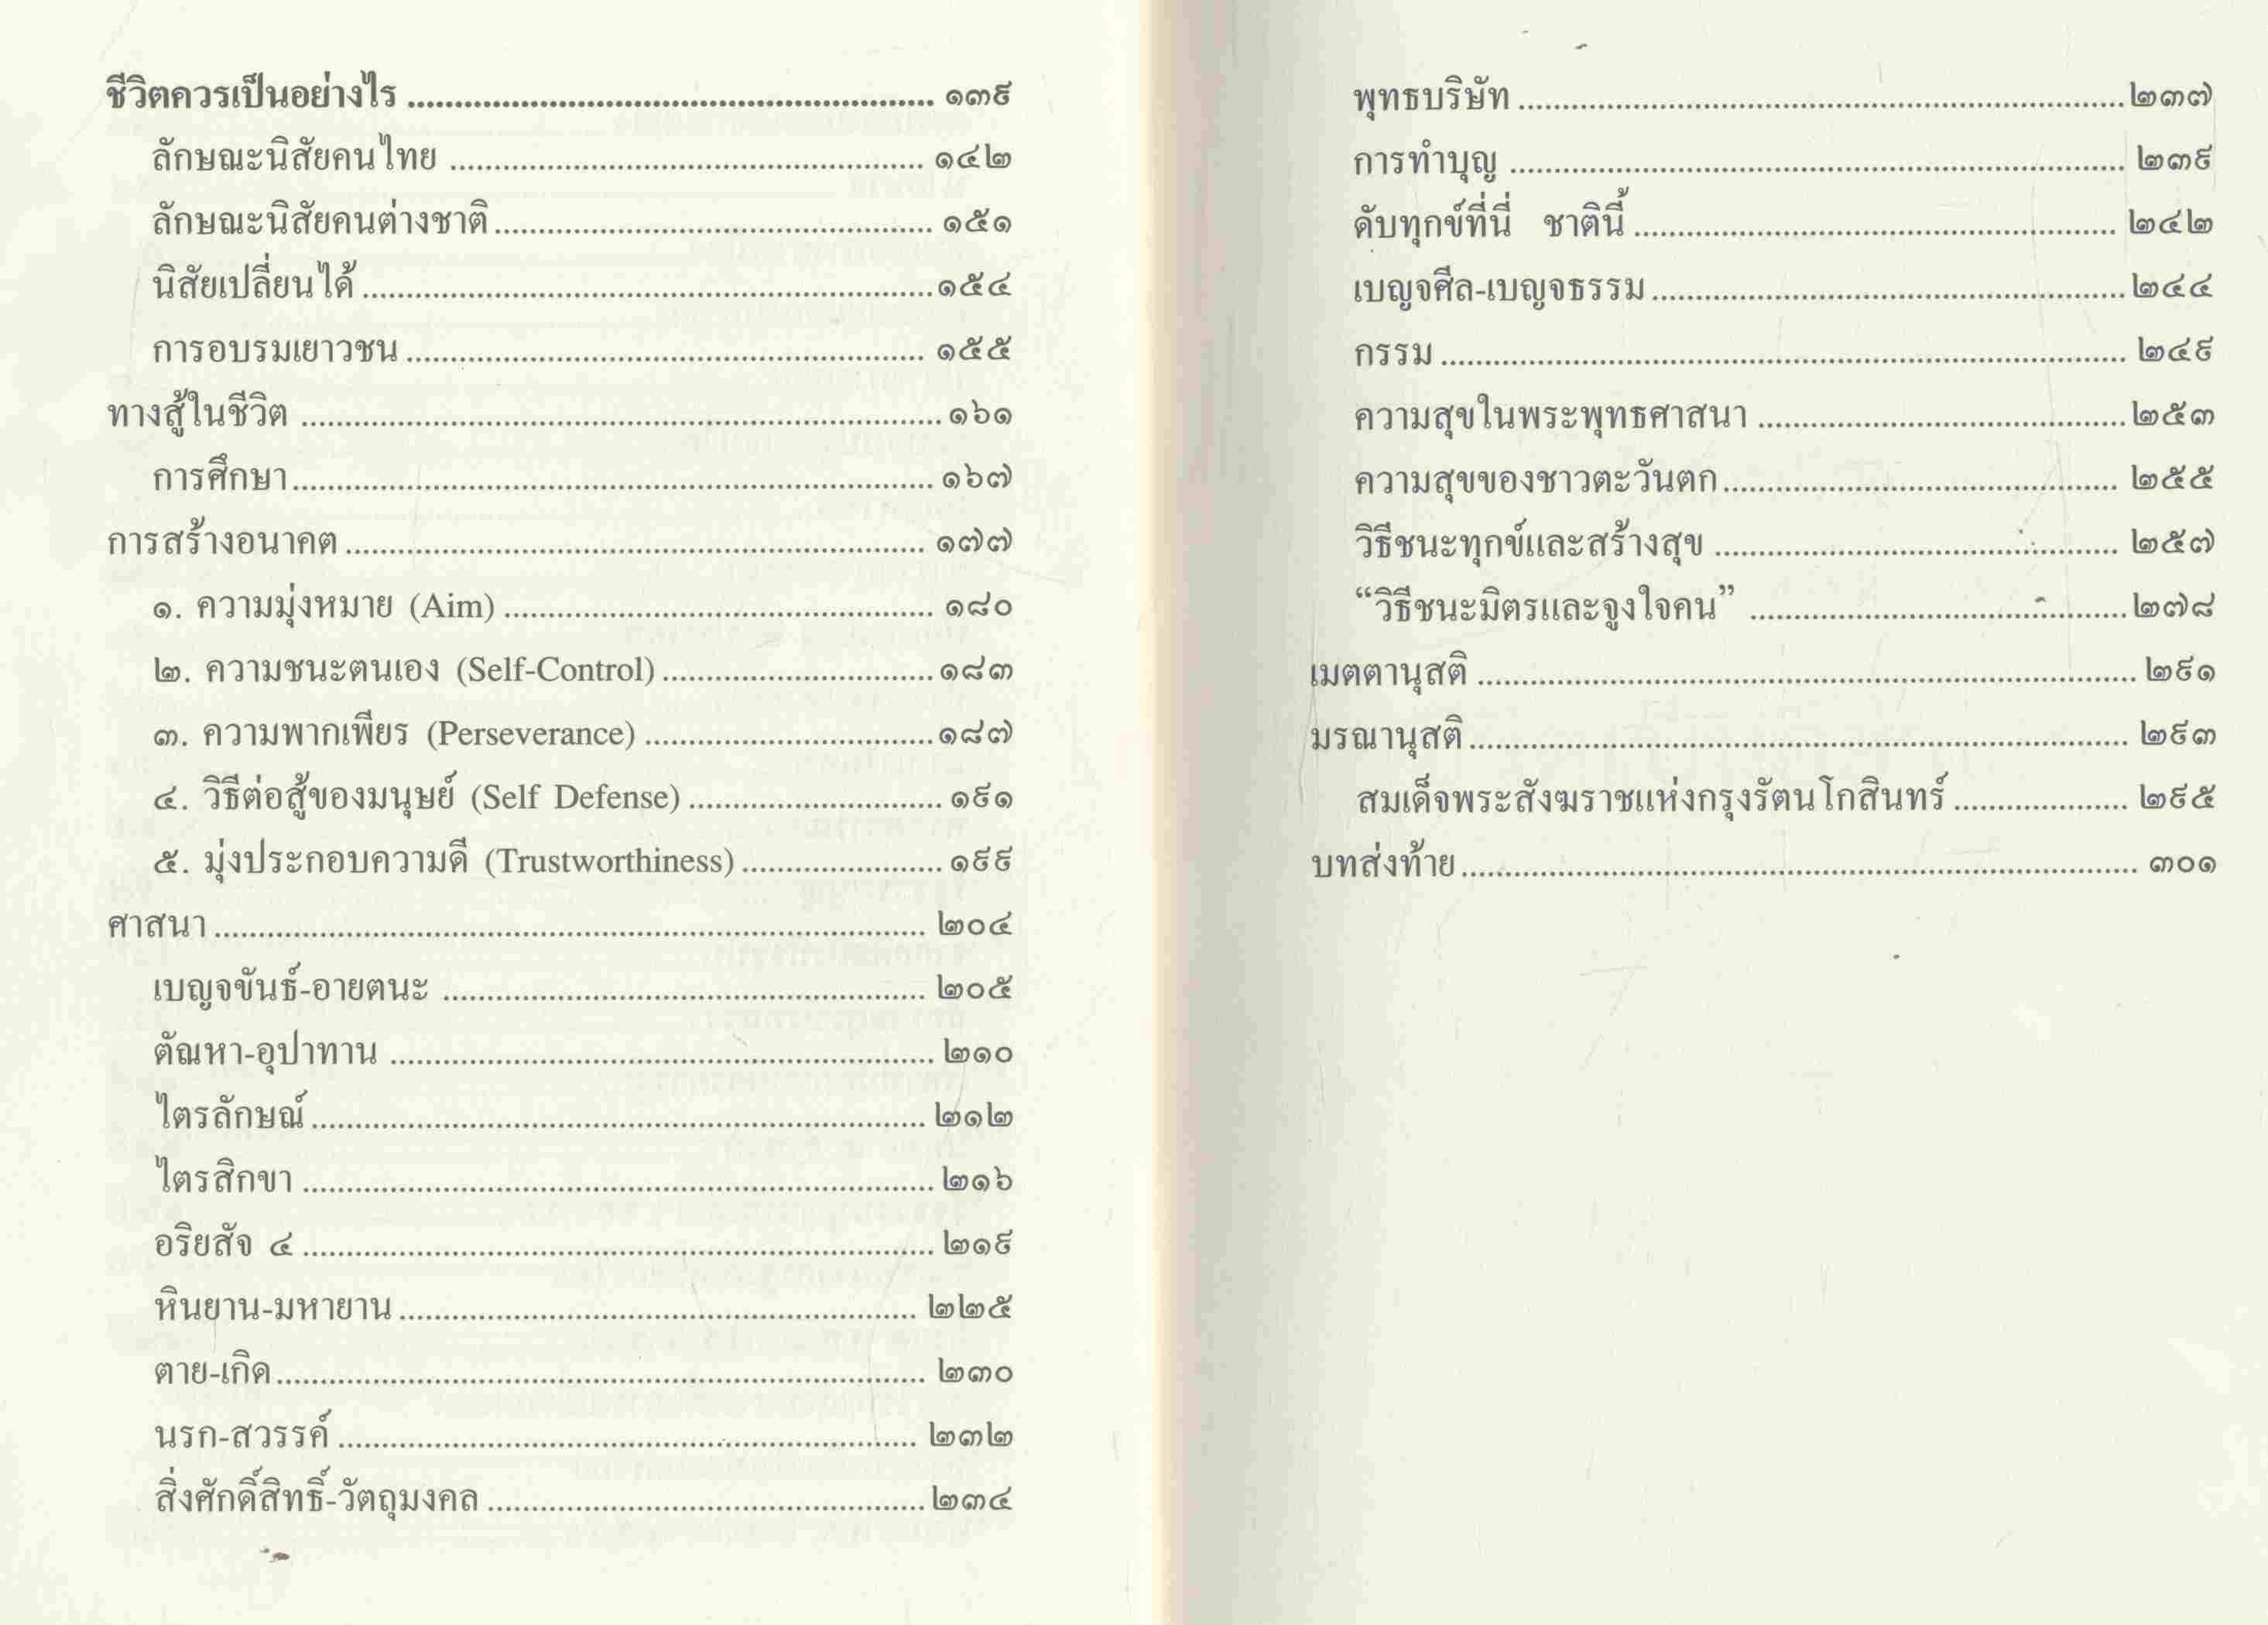 ชีวิตควรเป็นอย่างไร ........................................................ ๑๓๙
ลักษณะนิสัยคนไทย ...................................................... ๑๔๒
ลักษณะนิสัยคนต่างชาติ.................................................. ๑๕๑
นิสัยเปลี่ยนได้.................................................................๑๕๔
การอบรมเยาวชน ........................................................... ๑๕๕
ทางสู้ในชีวิต .........................................................................๑๖๑
การศึกษา......................................................................... ๑๖๗
การสร้างอนาคต .................................................................. ๑๗๗
๑. ความมุ่งหมาย (Aim) ................................................. ๑๘๐
๒. ความชนะตนเอง (Self-Control)...............................๑๘๓
๓. ความพากเพียร (Perseverance) .................................๑๘๗
๔. วิธีต่อสู้ของมนุษย์ (Self Defense) ............................. ๑๙๑
๕. มุ่งประกอบความดี (Trustworthiness)....................... ๑๙๙
ศาสนา ................................................................................. ๒๐๔
เบญจขันธ์-อายตนะ ....................................................... ๒๐๕
ตัณหา-อุปาทาน .............................................................. ๒๑๐
ไตรลักษณ์...................................................................... ๒๑๒
ไตรสิกขา ........................................................................ ๒๑๖
อริยสัจ ๔ ........................................................................ ๒๑๙
หินยาน-มหายาน........................................................... ๒๒๕
ตาย-เกิด.......................................................................... ๒๓๐
นรก-สวรรค์ .................................................................. ๒๓๒
สิ่งศักดิ์สิทธิ์-วัตถุมงคล ..................................................๒๓๔
พุทธบริษัท .....................................................................๒๓๗
การทำบุญ ...................................................................... ๒๓๙
ดับทุกข์ที่นี่ ชาตินี้ ....................................................... ๒๔๒
เบญจศีล-เบญจธรรม......................................................๒๔๔
กรรม .............................................................................. ๒๔๙
ความสุขในพระพุทธศาสนา ..........................................๒๕๓
ความสุขของชาวตะวันตก............................................. ๒๕๕
วิธีชนะทุกข์และสร้างสุข .............................................. ๒๕๗
“วิธีชนะมิตรและจูงใจคน” ...........................................๒๗๘
เมตตานุสติ ........................................................................... ๒๙๑
มรณานุสติ........................................................................... ๒๙๓
สมเด็จพระสังฆราชแห่งกรุงรัตนโกสินทร์.................... ๒๙๕
บทส่งท้าย............................................................................. ๓๐๑